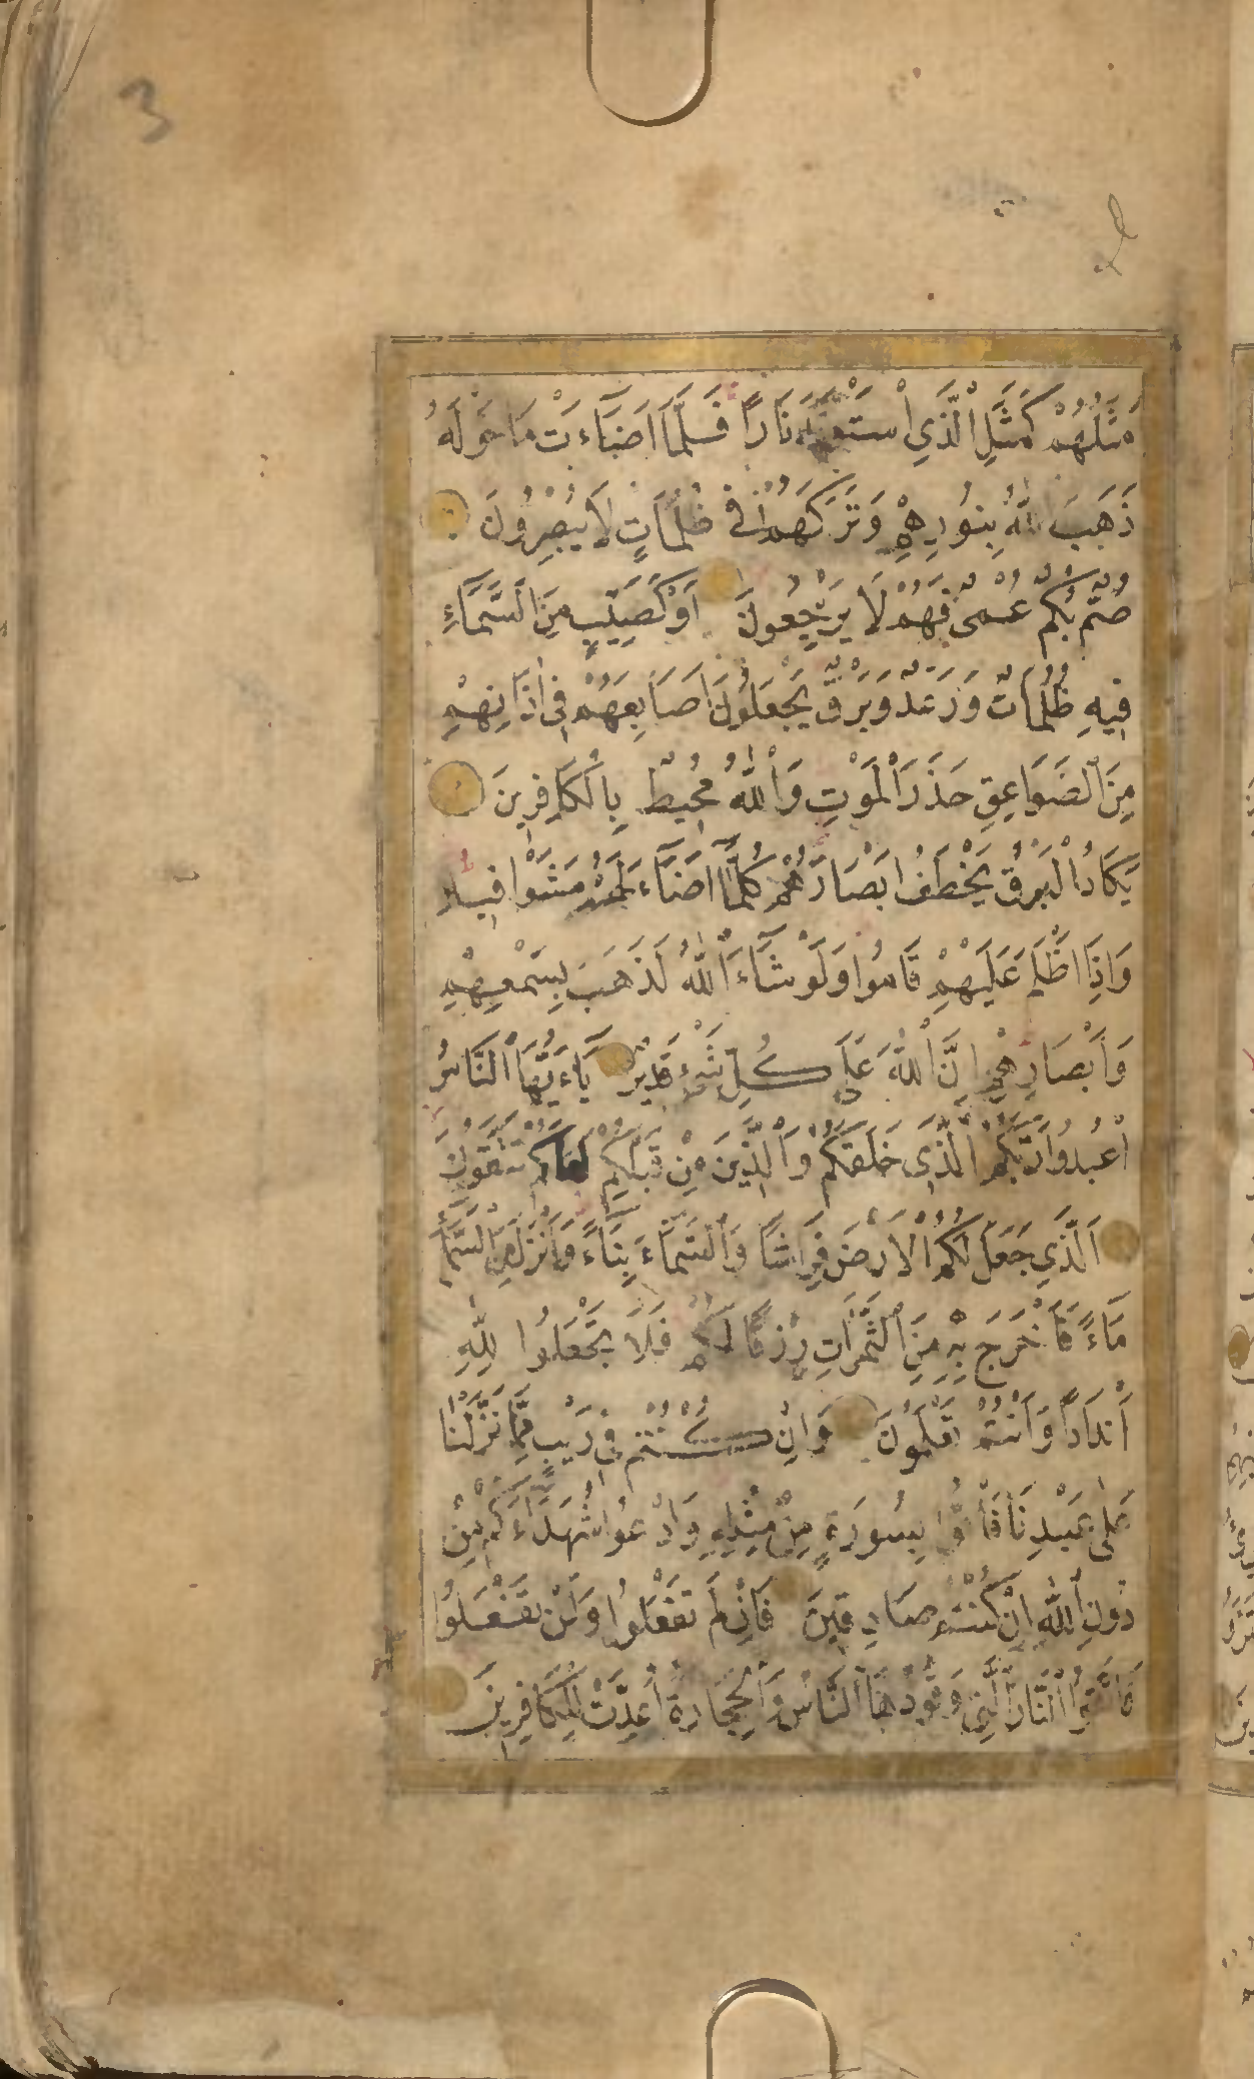 3
مَثَلُهُمْ كَمَثَلِ الَّذِي اسْتَوْقَدَ نَارًا فَلَمَّا اَضَاءَتْ مَا حَوْلَهُ
ذَهَبَ اللّٰهُ بِنُورِهِمْ وَتَرَكَهُمْ فِي ظُلُمَاتٍ لَا يُبْصِرُونَ
صُمٌّ بُكْمٌ عُمْيٌ فَهُمْ لَا يَرْجِعُونَ اَوْ كَصَيِّبٍ مِنَ السَّمَاءِ
فِيهِ ظُلُمَاتٌ وَرَعْدٌ وَبَرْقٌ يَجْعَلُونَ اَصَابِعَهُمْ فِي اٰذَانِهِمْ
مِنَ الصَّوَاعِقِ حَذَرَ الْمَوْتِ وَاللّٰهُ مُحِيطٌ بِالْكَافِرِينَ
يَكَادُ الْبَرْقُ يَخْطَفُ اَبْصَارَهُمْ كُلَّمَا اَضَاءَ لَهُمْ مَشَوْا فِيهِ
وَاِذَا اَظْلَمَ عَلَيْهِمْ قَامُوا وَلَوْ شَاءَ اللّٰهُ لَذَهَبَ بِسَمْعِهِمْ
وَاَبْصَارِهِمْ اِنَّ اللّٰهَ عَلٰى كُلِّ شَيْءٍ قَدِيرٌ يَاءَيُّهَا النَّاسُ
اعْبُدُوا رَبَّكُمُ الَّذِي خَلَقَكُمْ وَالَّذِينَ مِنْ قَبْلِكُمْ لَعَلَّكُمْ تَتَّقُونَ
اَلَّذِي جَعَلَ لَكُمُ الْاَرْضَ فِرَاشًا وَالسَّمَاءَ بِنَاءً وَاَنْزَلَ مِنَ السَّمَاءِ
مَاءً فَاَخْرَجَ بِهِ مِنَ الثَّمَرَاتِ رِزْقًا لَكُمْ فَلَا تَجْعَلُوا لِلّٰهِ
اَنْدَادًا وَاَنْتُمْ تَعْلَمُونَ وَاِنْ كُنْتُمْ فِي رَيْبٍ مِمَّا نَزَّلْنَا
عَلٰى عَبْدِنَا فَأْتُوا بِسُورَةٍ مِنْ مِثْلِهِ وَادْعُوا شُهَدَاءَكُمْ مِنْ
دُونِ اللّٰهِ اِنْ كُنْتُمْ صَادِقِينَ فَاِنْ لَمْ تَفْعَلُوا وَلَنْ تَفْعَلُوا
فَاتَّقُوا النَّارَ الَّتِي وَقُودُهَا النَّاسُ وَالْحِجَارَةُ اُعِدَّتْ لِلْكَافِرِينَ